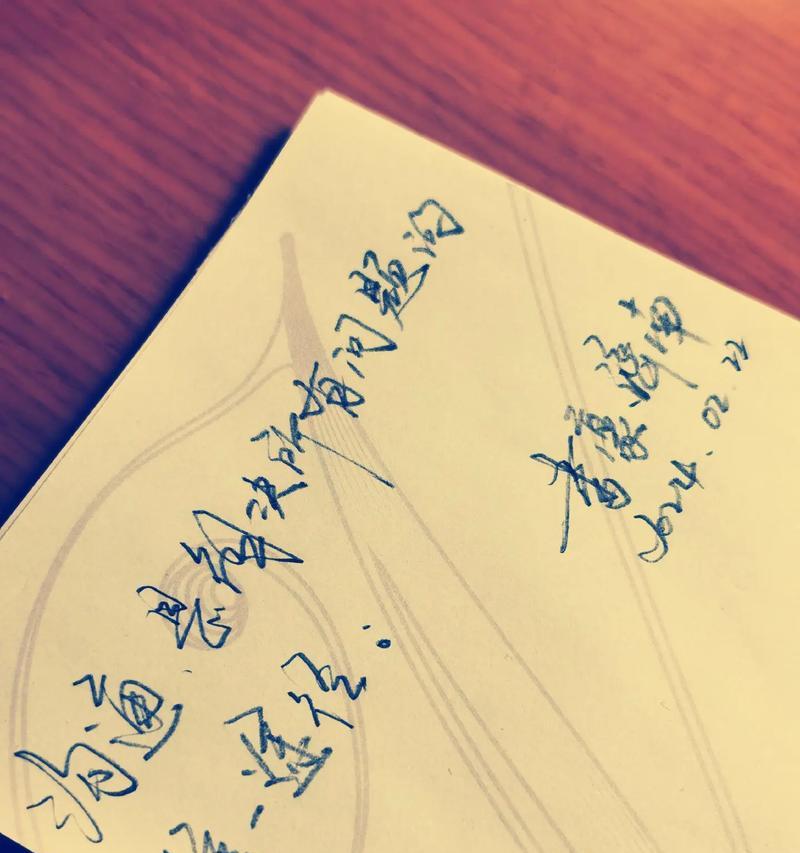 沟通,是解决所有问题的
唯一途径.
2024.02.22